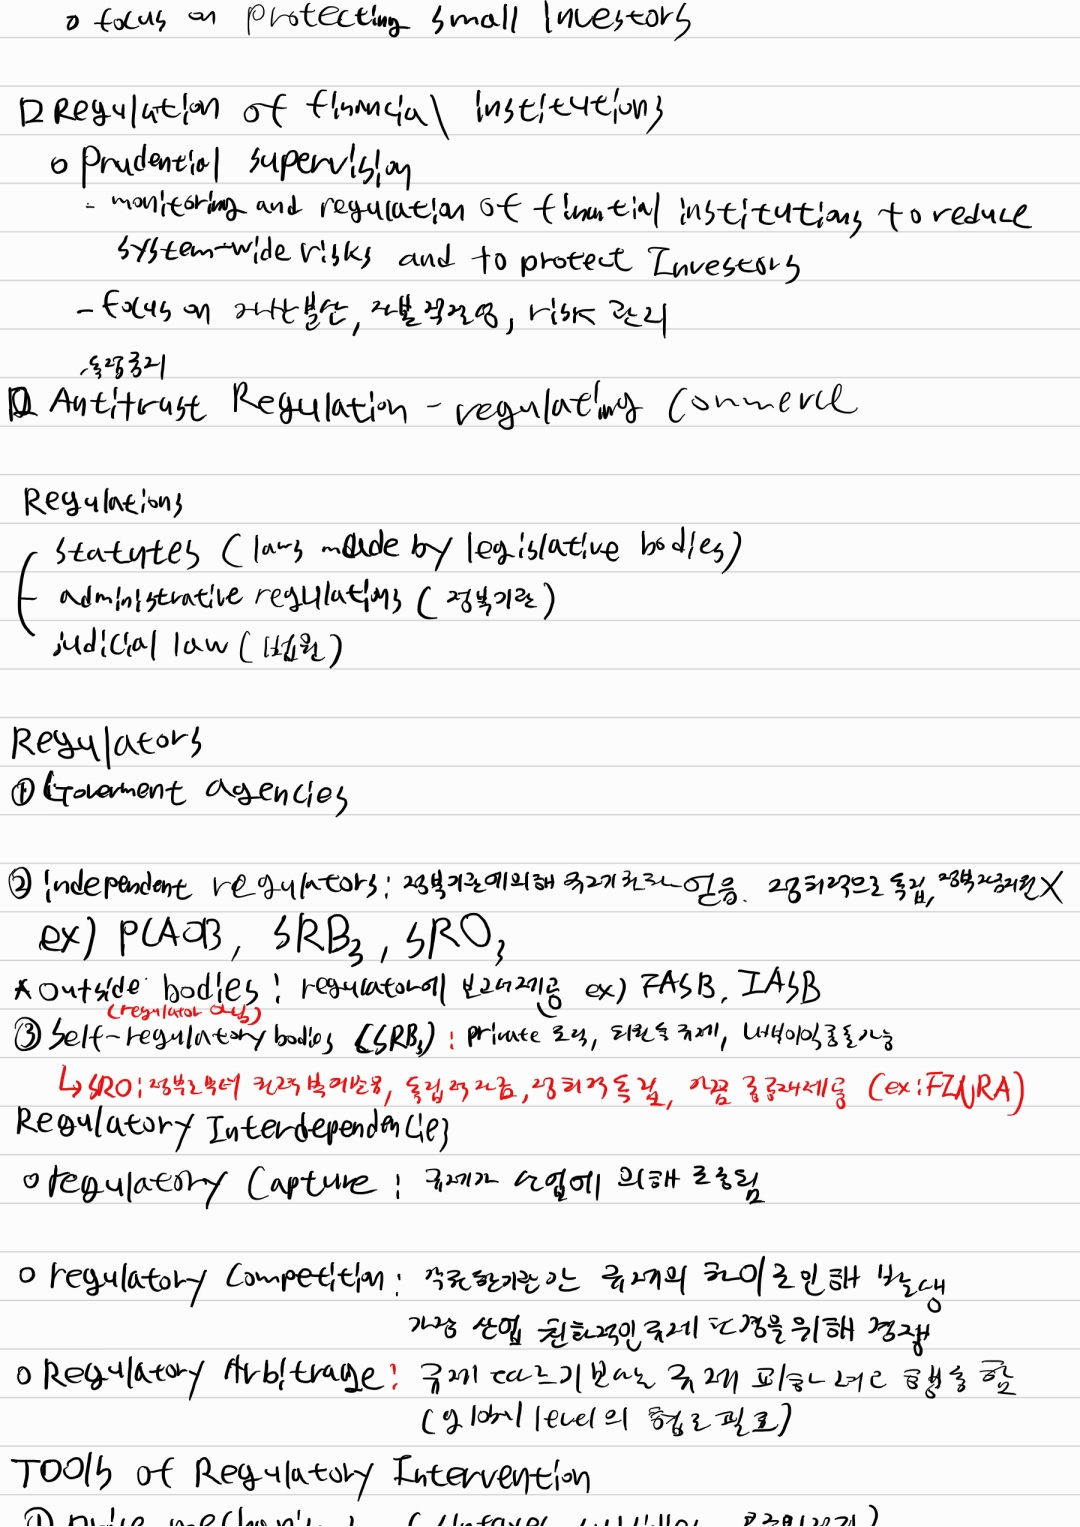 o focus on protecting small Investors
Regulation of financial institutions
o Prudential supervision
- monitoring and regulation of financial institutions to reduce
system-wide risks and to protect Investors
- focus on 자산분산, 자본적정성, risk 관리
독점금지
Antitrust Regulation - regulating Commerce
Regulations
statutes (laws made by legislative bodies)
administrative regulations (정부기관)
judicial law (법원)
Regulators
① Goverment agencies
② Independent regulators: 정부기관에 의해 규제권한 얻음. 정치적으로 독립, 정부자금지원 X
ex) PCAOB, SRBs, SROs
* outside bodies : regulator에 보고서제공 ex) FASB, IASB
(regulator 아님)
③ Self-regulatory bodies (SRBs) : private 조직, 회원들 규제, 내부이익충돌가능
↳ SRO: 정부로부터 권력 부여받음, 독립적 자금, 정치적 독립, 가끔 공공재제공 (ex: FINRA)
Regulatory Interdependencies
o regulatory Capture : 규제가 산업에 의해 조종됨
o regulatory Competition: 각규제기관 간 규제의 차이로 인해 발생
가장 산업 친화적인 규제 환경을 위해 경쟁
o Regulatory Arbitrage: 규제 따르기보다는 규제 피하려고 행동함
(global level의 협조 필요)
TOOls of Regulatory Intervention
① Price mechanisms